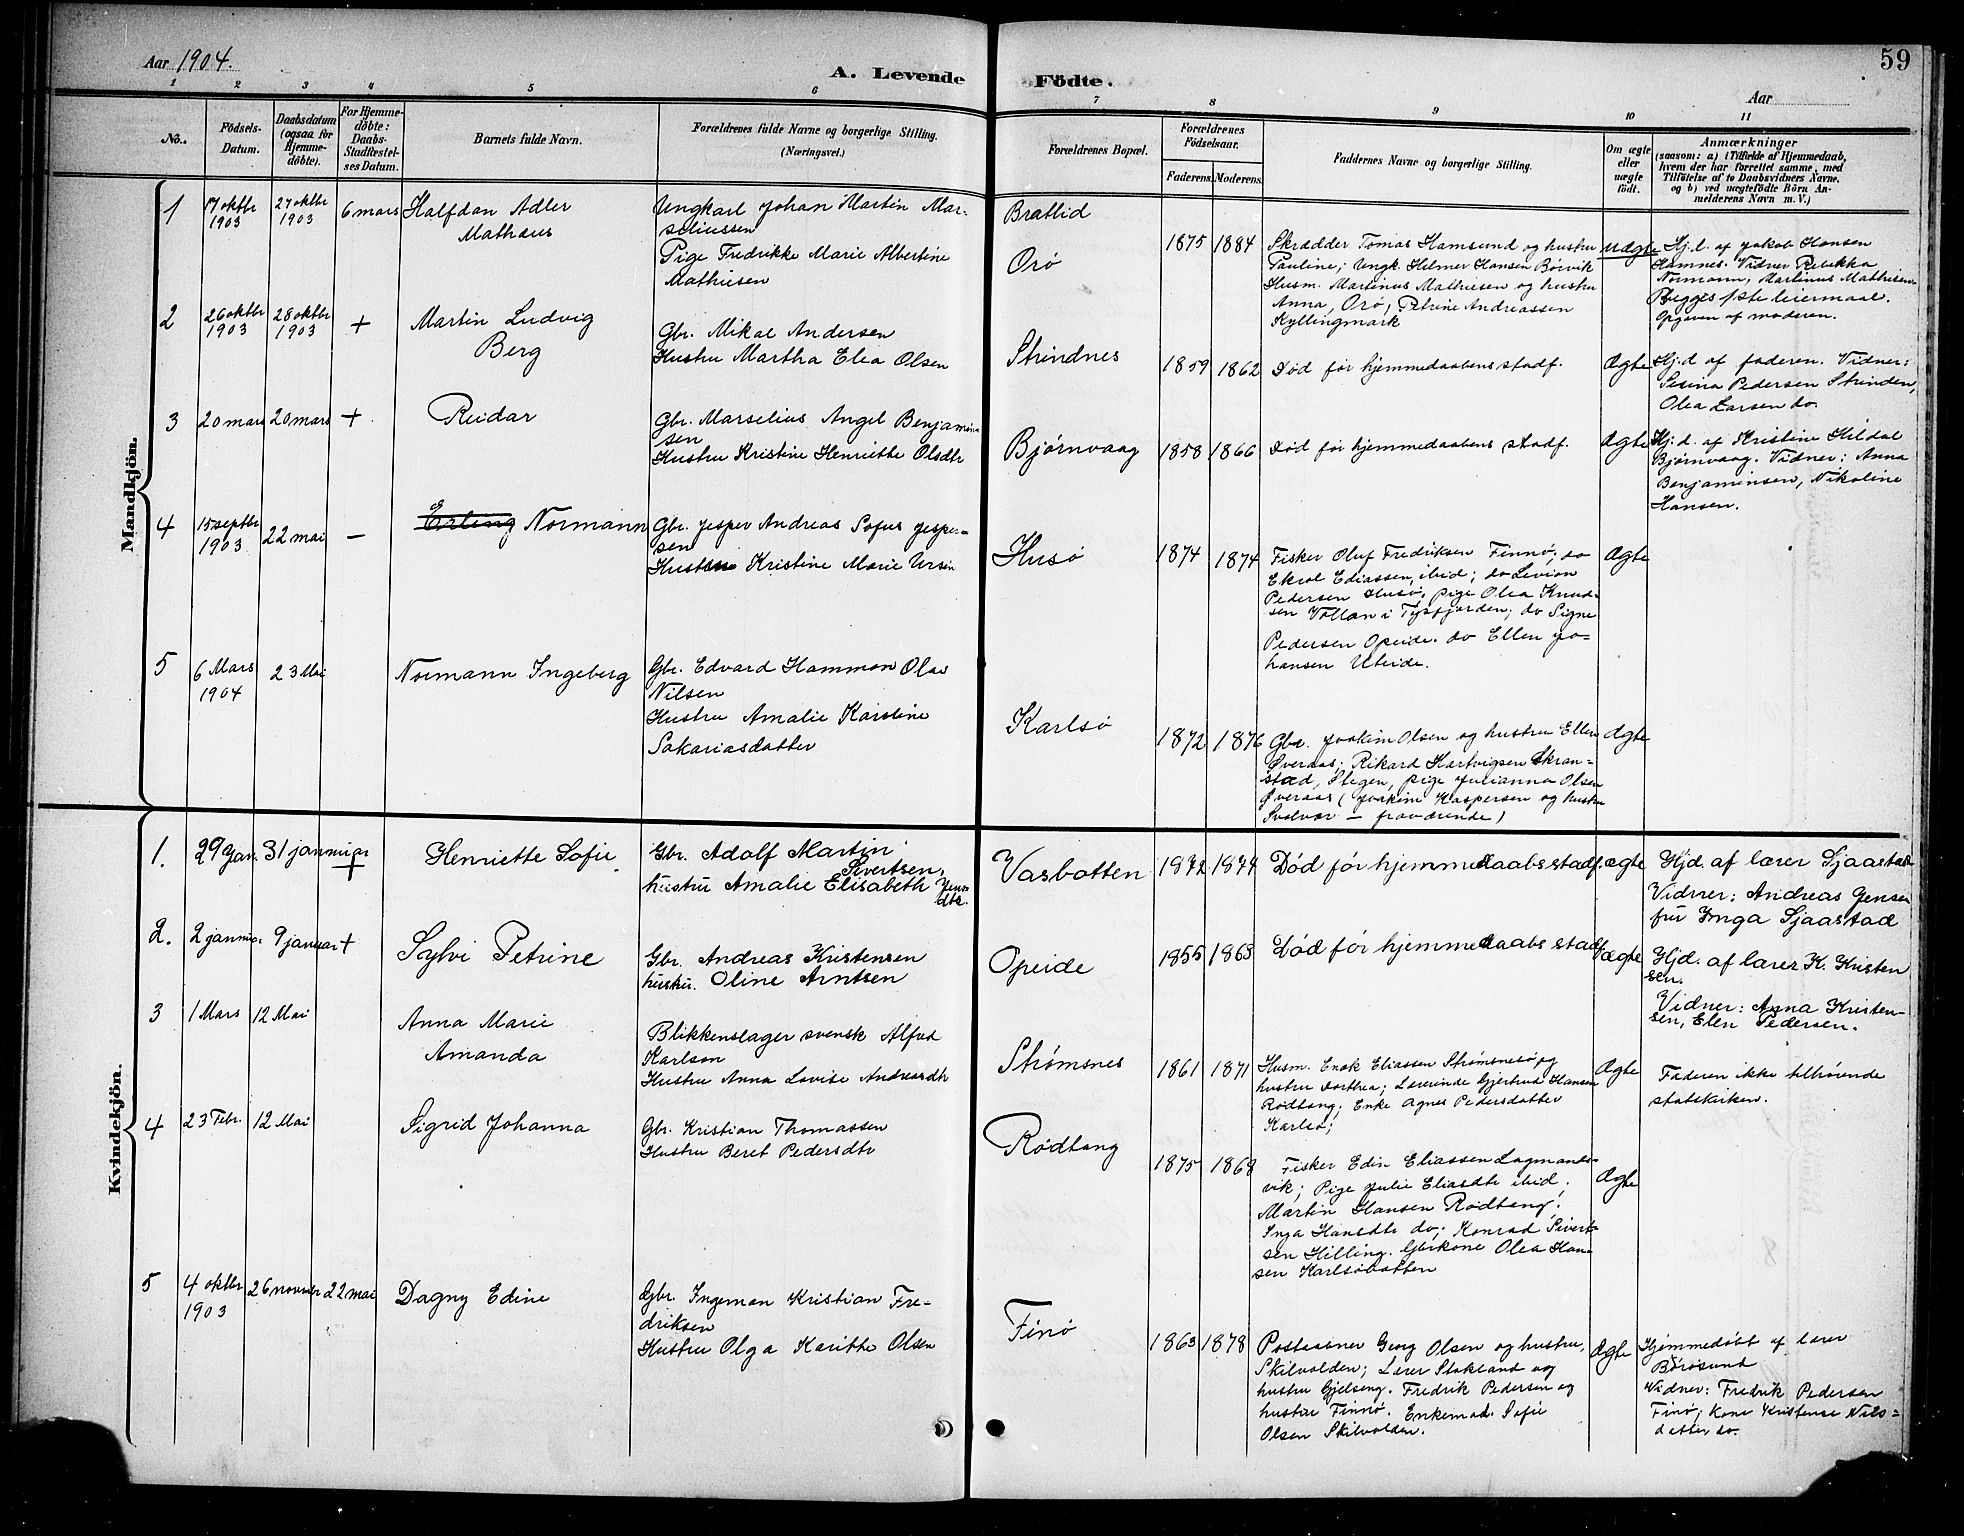 Aar 1904.
A. Levende
Födte.
59
Aar
1 2 3 4 5 6 7 8 9 10 11
No.
Födsels-
Datum.
Daabsdatum
(ogsaa for
Hjemme-
döbte).
For Hjemme-
döbte:
Daabs-
Stadfæstel-
ses Datum.
Barnets fulde Navn.
Forældrenes fulde Navne og borgerlige Stilling.
(Næringsvei.)
Forældrenes Bopæl.
Forældrenes
Födselsaar.
Faderens. Moderens.
Faddernes Navne og borgerlige Stilling.
Om ægte
eller
uægte
födt.
Anmærkninger
(saasom: a) i Tilfælde af Hjemmedaab,
hvem der har forrettet samme, med
Tilföielse af to Daabsvidners Navne,
og b) ved uægtefödte Börn An-
melderens Navn m.V.)
Mandkjön.
1
17 oktbr
1903
27 oktbr
1903
6 mars
Halfdan Adler
Mathæus
Ungkarl Johan Martin Mar-
seliussen
Pige Fredrikke Marie Albertine
Mathiesen
Brattlid
Orö
1875 1884
Skrædder Tomas Hamsund og hustru
Pauline; Ungk. Hilmer Hansen Börvik
Husm. Martinus Mathiesen og hustru
Anna, Orö; Petrine Andreassen
Kyllingmark
Uægte
Hj.d. af Jakob Hansen
Hamnes. Vidner Rebekka
Normann, Martinus Mathiesen
Begges 1ste leiermaal.
Opgiven af moderen.
2
26 oktbr
1903
28 oktbr
1903
+
Martin Ludvig
Berg
Gbr. Mikal Andersen
Hustru Martha Elea Olsen
Strindnes
1859 1862
Död för hjemmedaabens stadf.
Ægte
Hj.d af faderen. Vidner:
Sesina Pedersen Strinden,
Olea Larsen do.
3
20 mars
20 mars
+
Reidar
Gbr. Marselius Angel Benjamin
sen
Hustru Kristine Henriette Olsdtr
Bjørnvaag
1858 1866
Död för hjemmedaabens stadf.
Ægte
Hj.d. af Kristine Hildal
Bjørnvaag. Vidner: Anna
Benjaminsen, Nikoline
Hansen.
4
15 septbr
1903
22 mai
—
Erling Normann
Gbr. Jesper Andreas Sofus Jesper-
sen
Hustru Kristine Marie Ursin
Husö
1874 1874
Fisker Oluf Fredriksen Finnö; do
Ekrol Ediassen, ibid; do Levion
Pedersen Husö, pige Olea Knud-
sen Vollan i Tysfjorden; do Signe
Pedersen Opeide. do Ellen Jo-
hansen Uteide.
Ægte
5
6 Mars
1904
23 Mai
Normann Ingeberg
Gbr. Edvard Hammon Olav
Nilsen
Hustru Amalie Karstine
Sakariasdatter
Karlsö
1872 1876
Gbr. Joakim Olsen og hustru Ellen
Sveraas; Rikard Hartvigsen Skran-
stad, Stegen, pige Julianna Olsen
Sveraas (Joakim Kaspersen og hustru
Svolvær — fraværende)
Ægte
Kvindekjön.
1.
29 Jan.
31 januar
+
Henriette Sofie
Gbr. Adolf Martin
Sivertsen,
hustru Amalie Elisabeth Jens
dtr.
Vasbotten
1872 1874
Död för hjemmedaabs stadf.
ægte
Hjd. af lærer Sjaastad
Vidner: Andreas Jensen
fru Inga Sjaastad
2.
2 januar
9 januar
+
Sylvi Petrine
Gbr. Andreas Kristensen
hustru. Oline Arntsen
Opeide
1855 1863
Död för hjemmedaabs stadf.
ægte
Hjd. af lærer K. Kristen
sen.
Vidner: Anna Kristen-
sen, Elen Pedersen.
3
1 Mars
12 Mai
Anna Marie
Amanda
Blikkenslager svensk Alfred
Karlson
Hustru Anna Lovise Andreasdtr
Strömsnes
1861 1871
Husm. Enok Eliassen Strömsnes og
hustru Dorthea; Lærerinde Gjertrud Hansen
Rödtang; Enke Agnes Pedersdatter
Karlsö;
Ægte
Faderen ikke tilhörende
statskirken.
4
23 Febr.
12 Mai
Sigrid Johanna
Gbr. Kristian Thomassen
Hustru Beret Pedersdtr
Rödtang
1875 1868
Fisker Edin Eliassen Lagmands-
vik; Pige Julie Eliasdtr ibid,
Martin Hansen Rödtang;
Inga Hansdtr do; Konrad Sivert-
sen Hilling. Gbrkone Olea Han-
sen Karlsöbotten
Ægte
5
4 oktbr
1903
26 novmbr
22 mai
Dagny Edine
Gbr. Ingeman Kristian Fre-
driksen
Hustru Olga Karitte Olsen
Finö
1863 1878
Postaabner Georg Olsen og hustru,
Skilvolden; Lærer Stokland og
hustru Gjelseng. Fredrik Pedersen og
hustru Finnö. Enkemad. Sofie
Olsen Skilvolden.
Ægte
Hjemmedöbt af lærer
Börösund
Vidner: Fredrik Pedersen
Finö; Kone Kristense Nils-
datter do.